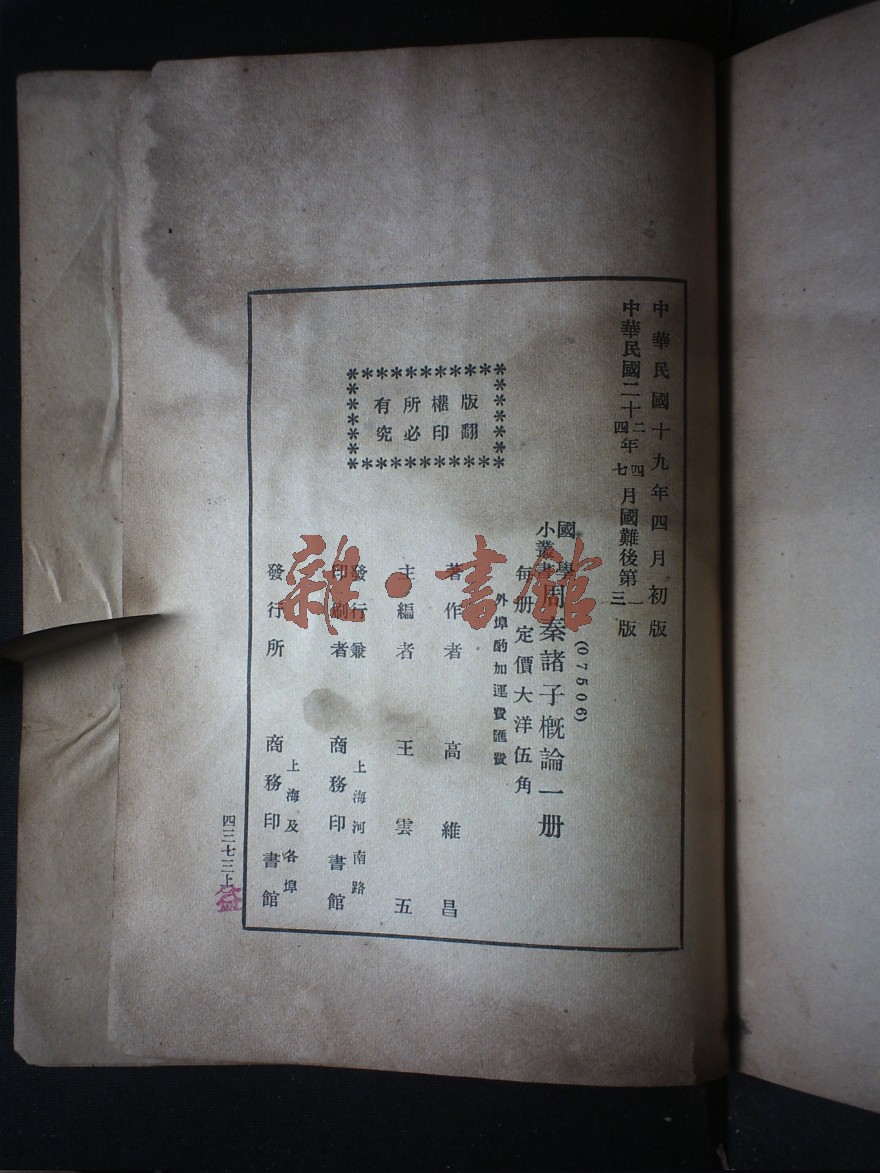 中華民國十九年四月初版
中華民國二十二年四月國難後第一版
四 七 三
版權所有
翻印必究
(07506)
國學小叢書
周秦諸子概論一册
每册定價大洋伍角
外埠酌加運費匯費
著作者 高維昌
主編者 王雲五
發行兼印刷者 上海河南路 商務印書館
發行所 上海及各埠 商務印書館
四三七三上
雜·書館